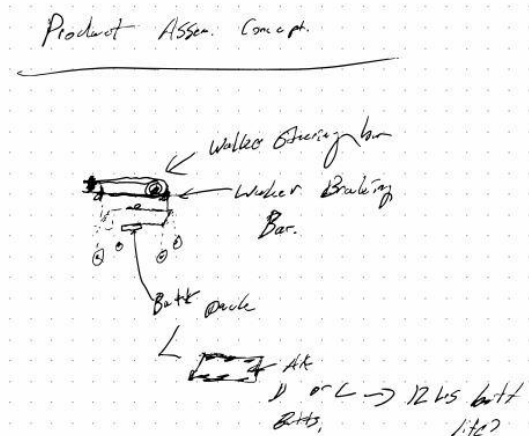 Product Assem. Concept.
Walker Steering bar
Walker Braking
Bar.
Batt pack
D or C → 12 hrs batt
Batts. life?